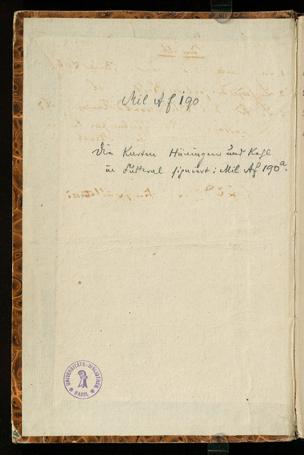 Mil Af 190
Die Karten Hüningen und Kehl
in Futteral signiert: Mil Af 190a.
UNIVERSITÄTS-BIBLIOTHEK
BASEL